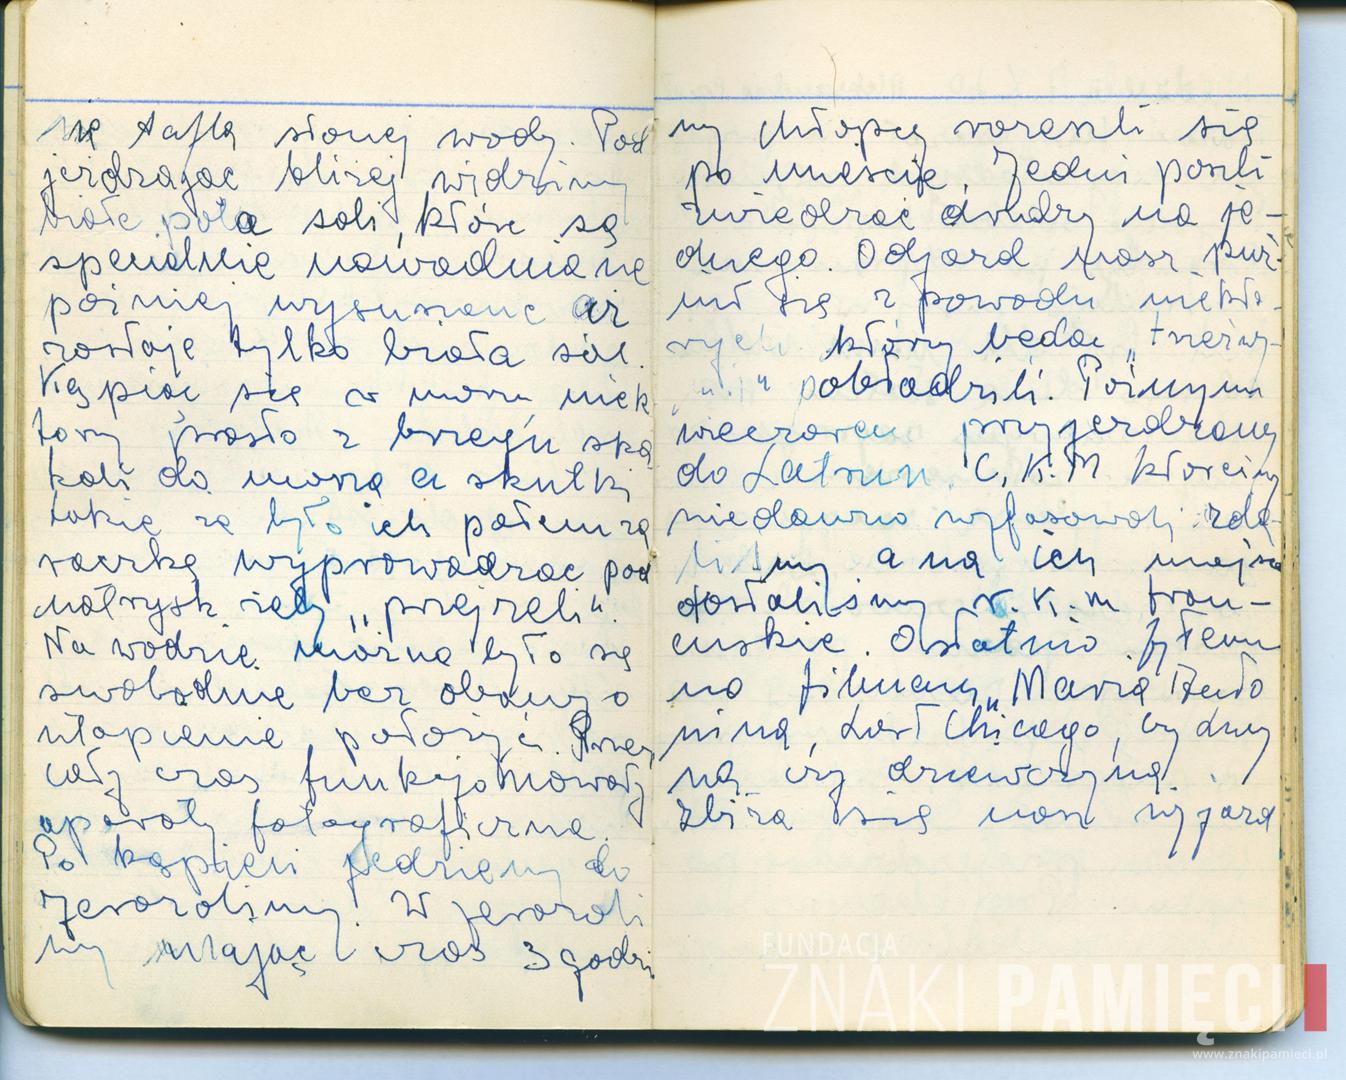 na tafla słonej wody. Pod
jerdzając bliżej widzimy
białe pola soli, które są
specialnie nawadniane
poźniej wysuszane aż
zostaje tylko biała sól.
Kąpiąc się w morzu niek
tory prosto z brzegu ska
kali do morza a skutki
takie że było ich potem za
raczkę wyprowadzac pod
natrysk żeby „przejzeli".
Na wodzie można było się
swobodnie bez obawy o
utopienie położyć. Przez
cały czas funkcjonowały
aparaty fotograficzne.
Po kąpieli jedziemy do
Jerozolimy. W Jerozoli
my mając czas 3 godzi
ny chłopcy rozeszli się
po mieście. Jedni poszli
zwiedzać drudzy na je-
dnego. Odjazd nasz puź-
nił się z powodu niektó-
rych, którzy będąc „trzeźwy-
mi" pobłądzili. Poźnym
wieczorem przyjezdzamy
do Latrun. C.K.M któreśmy
niedawno wyfasowali zda-
liśmy a na ich miejsce
dostaliśmy R.K.M fran-
cuskie. Ostatnio byłem
na filmach „Maria Stuło
nina, Lost Chicago, czy dzwy
na czy dziewczyna".
Zbliża się nasz wyjazd
FUNDACJA
ZNAKI PAMIĘCI
www.znakipamieci.pl